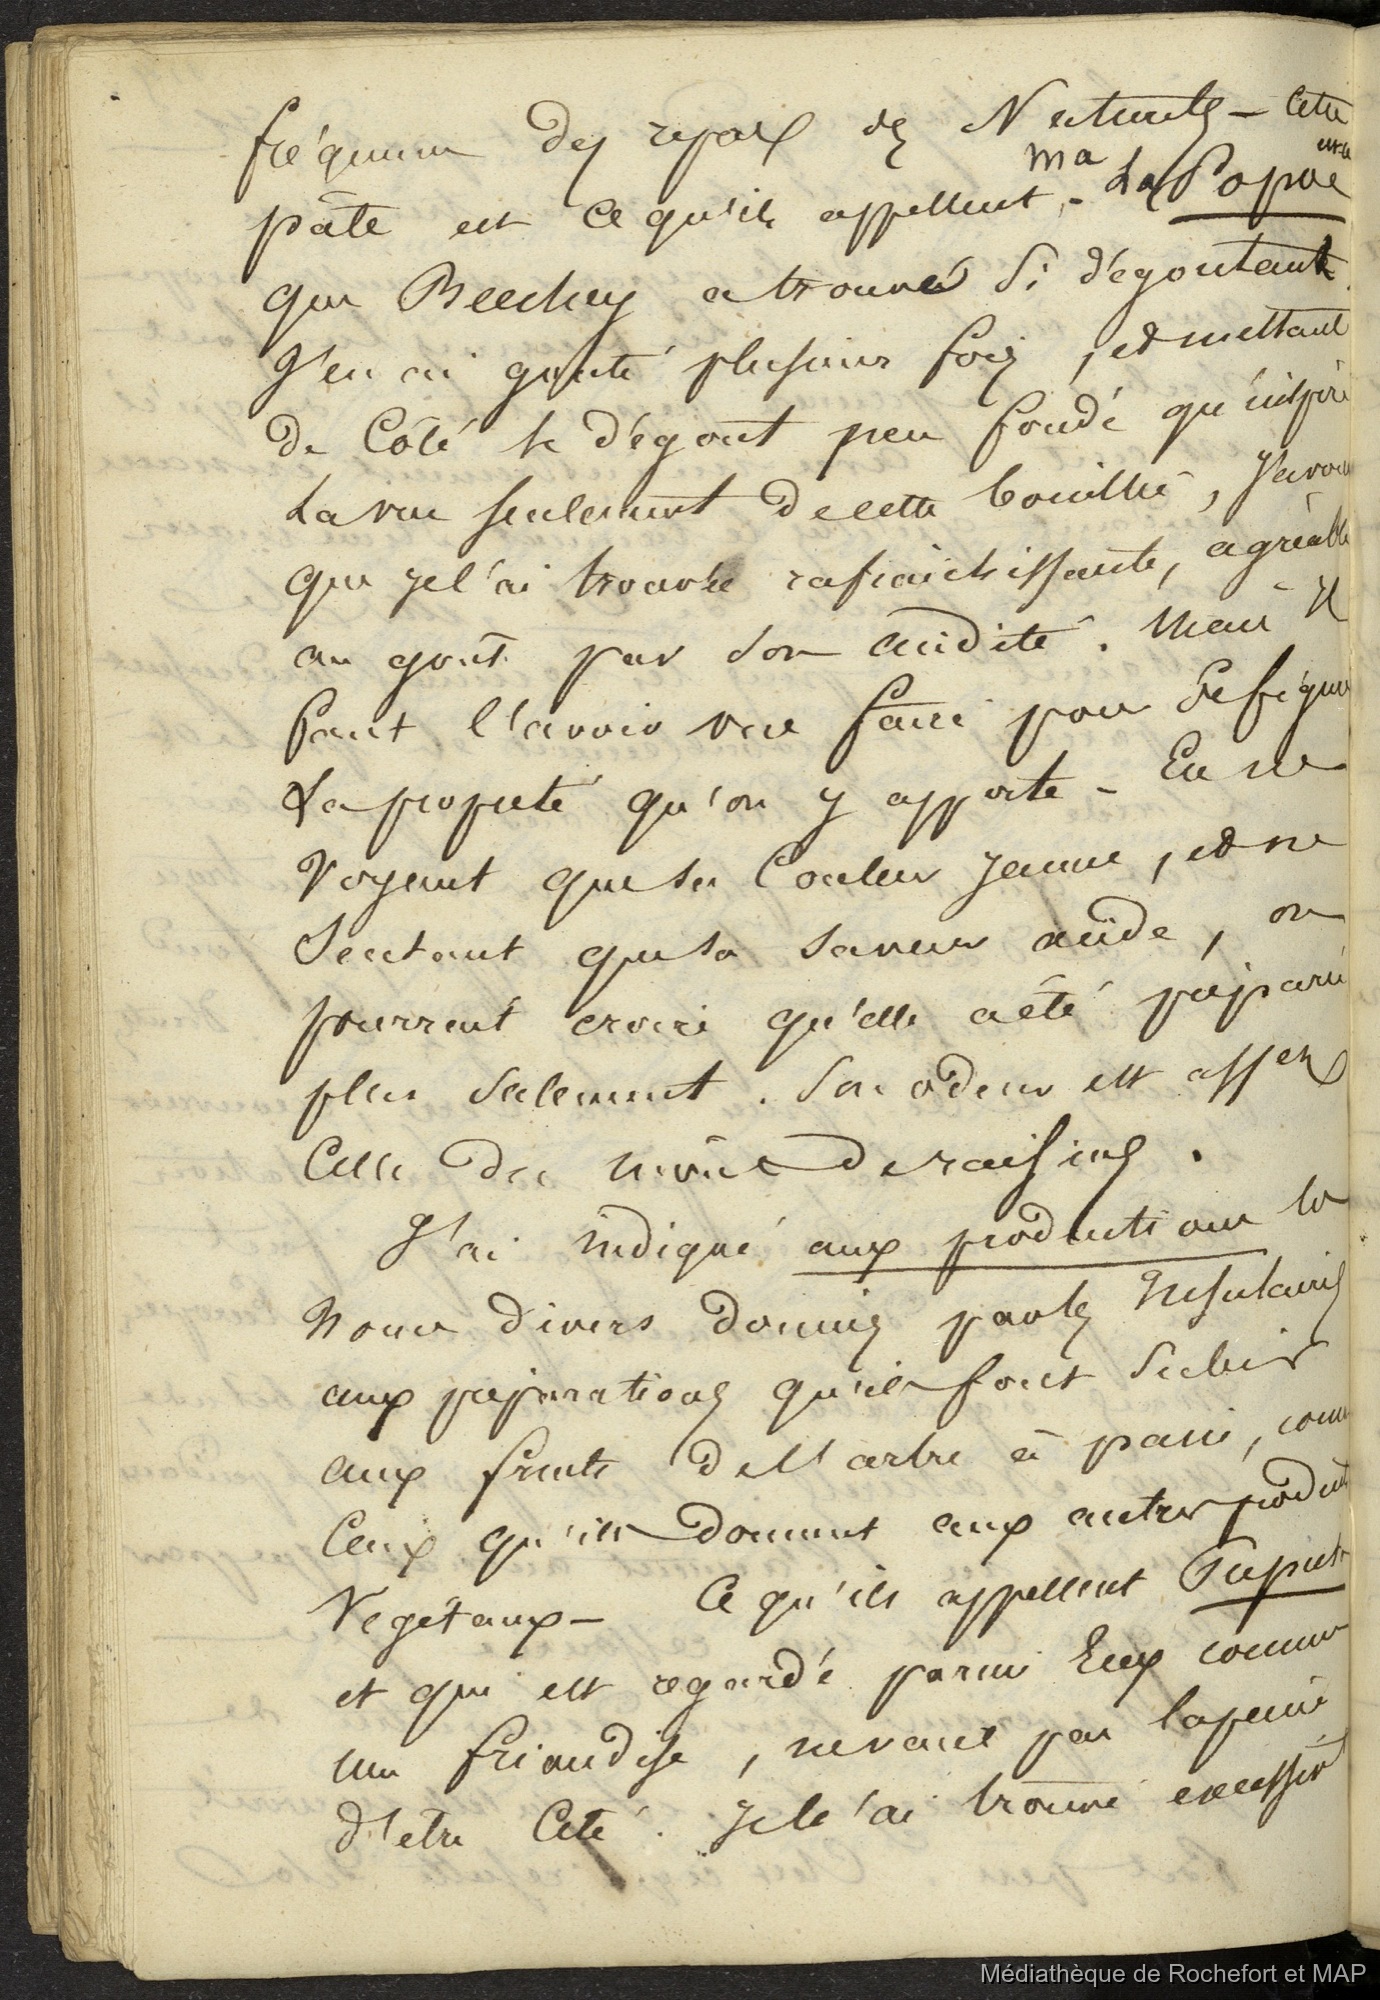 fréquemm des repas des Naturels - Cette
pâte est ce qu'ils appellent, - La Popoe
ma
que Beechey a trouvé si dégoutant
J'en ai gouté plusieurs fois, et mettant
de Côté le dégout peu fondé qu'inspire
La vue seulement de cette bouillie, J'avoue
que je l'ai trouvée rafraichissante, agréable
au goût par son acidité. Mais Il
faut l'avoir vue faire pour se figurer
La propreté qu'on y apporte - En ne
Voyant que sa Couleur jaune, et ne
Sentant que sa saveur acide, on
pourrait croire qu'elle a été préparée
plus salement. Son odeur est assez
Celle du moût de raisins.
J'ai indiqué aux productions les
Noms divers donnés par les Insulaires
aux préparations qu'ils font Subir
aux fruits de l'arbre à pain, comme
Ceux qu'ils donnent aux autres produits
Végétaux - Ce qu'ils appellent
et qui est regardé parmi Eux comme
une friandise, ne vaut pas la peine
d'être Cité. Je l'ai trouvé excessivt
Médiathèque de Rochefort et MAP